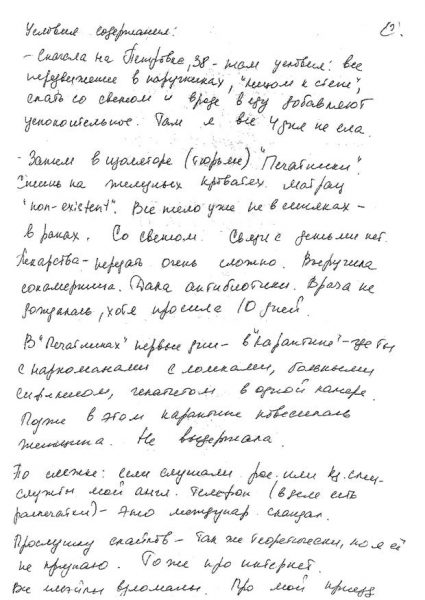 Условия содержания: (2).
- Сначала на Петровке, 38 - там условия: все
передвижение в наручниках, "лицом к стене",
спать со светом и вроде в еду добавляют
успокоительное. Там я все 4 дня не ела.
- Затем в изоляторе (тюрьме) "Печатники".
Спишь на железных кроватях. Матрац
"non-existent". Все тело уже не в синяках -
в ранах. Со светом. Связи с детьми нет.
Лекарства - передать очень сложно. Выручила
сокамерница. Дала антибиотики. Врача не
дождалась, хотя просила 10 дней.
В "Печатниках" первые дни - в "карантине" - где ты
с наркоманами с ломками, больными
сифилисом, гепатитом в одной камере.
Позже в этом карантине повесилась
женщина. Не выдержала.
По слежке: если слушали рос. или спец-
службы мой англ. телефон (в деле есть
распечатки) - это междунар. скандал.
Прослушку - так же теоретически, но я её
не . То же про интернет.
Все взломаны. Про мой приезд